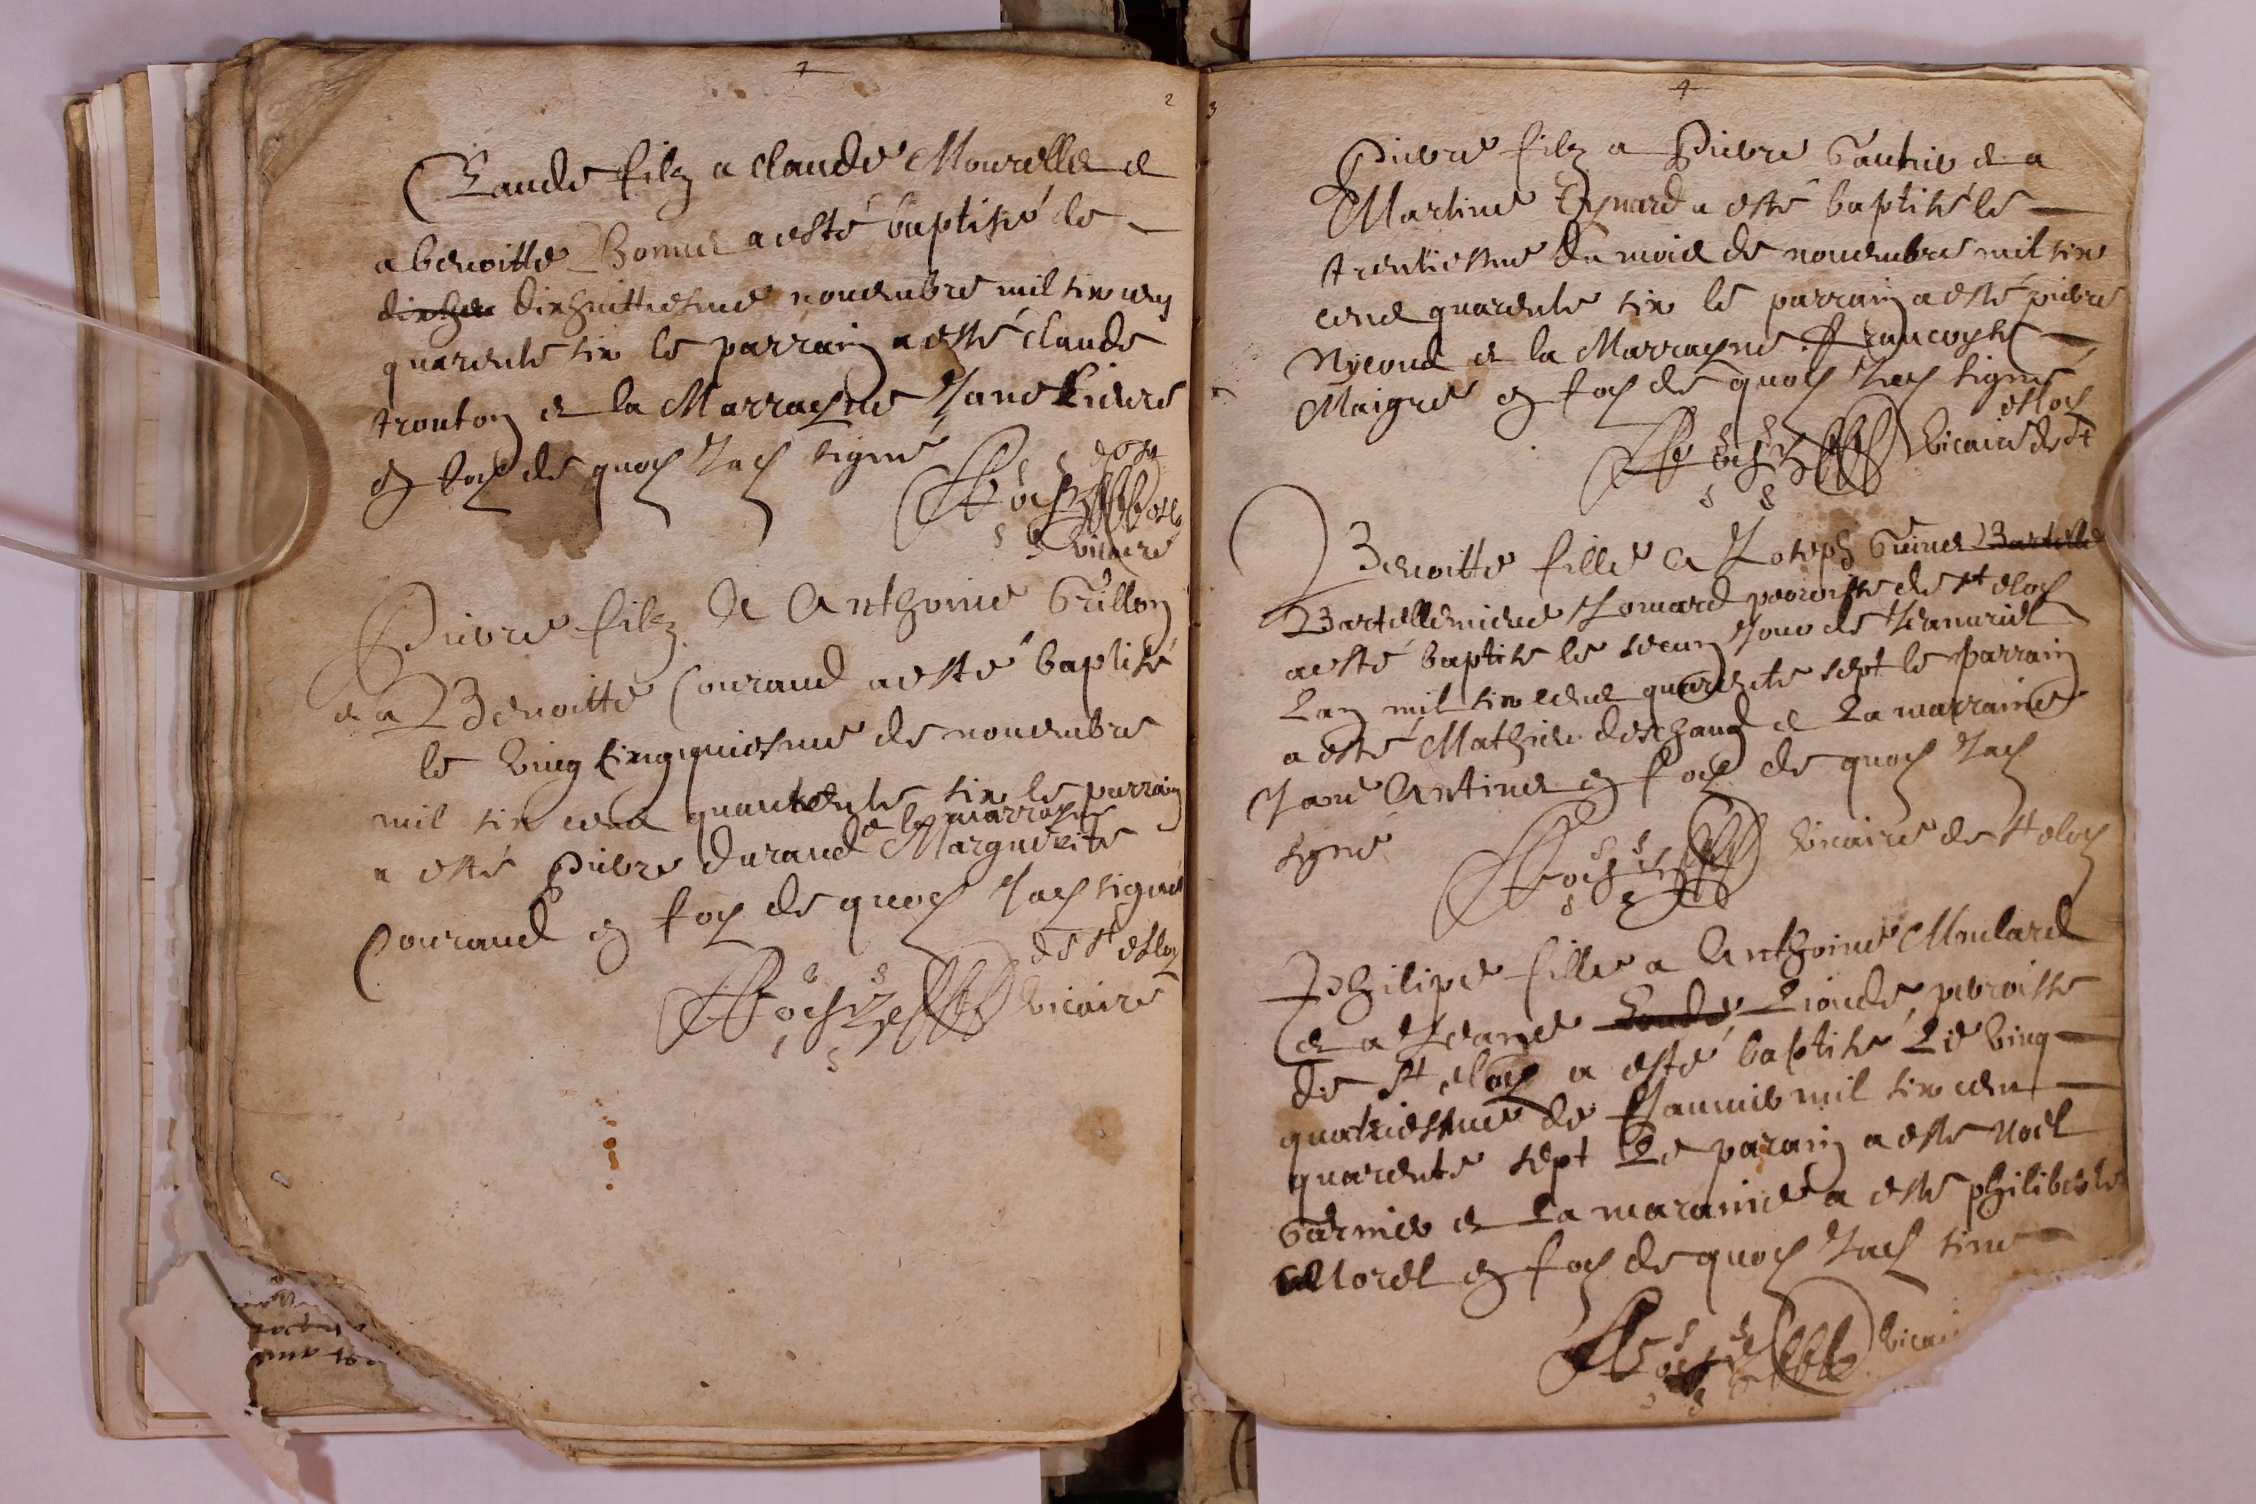 2
Claude filz a claude Mourelle et
a benoitte Bonnet a esté baptisé le
dixhuittiesme nouembre mil six cens
quarente six le parrain a esté claude
trouton et la Marrayne Jane
en foy de quoy Jay signé
vicaire
Pierre filz de Anthoine Grillon
et a Benoitte Couraud a esté baptisé
le vingt cinqquiesme de nouembre
mil six cent quarente six le parrain
et la marrayne
a esté Pierre durand Marguerite
Couraud en foy de quoy Jay signé
de St esloy
vicaire
3
Pierre filz a Pierre Gautier et a
Martine Eynard a esté baptisé le
trentiesme du mois de nouembre mil six
cent quarente six le parrain a esté pierre
Nicoud et la Marrayne francoyse
Maigre en foy de quoy Jay signé
esloy
vicaire de St
Benoitte fille a Joseph Guinet
Bartellemiene Jomard parroisse de St eloy
a esté baptise le secun Jour de
Lan mil six cent quarente sept le parrain
a esté Mathieu deschaud et La marraine
Jane Antinet en foy de quoy Jay
signé
vicaire de St eloy
philipe fille a Anthoine Moulard
et a Jeane Lioude paroisse
de St eloy a esté baptisé Le vingt
quatriesme de Januie mil six cent
quarente sept Le parain a esté noel
Garnier et La maraine a esté philiberte
Morel en foy de quoy Jay sine
vicai